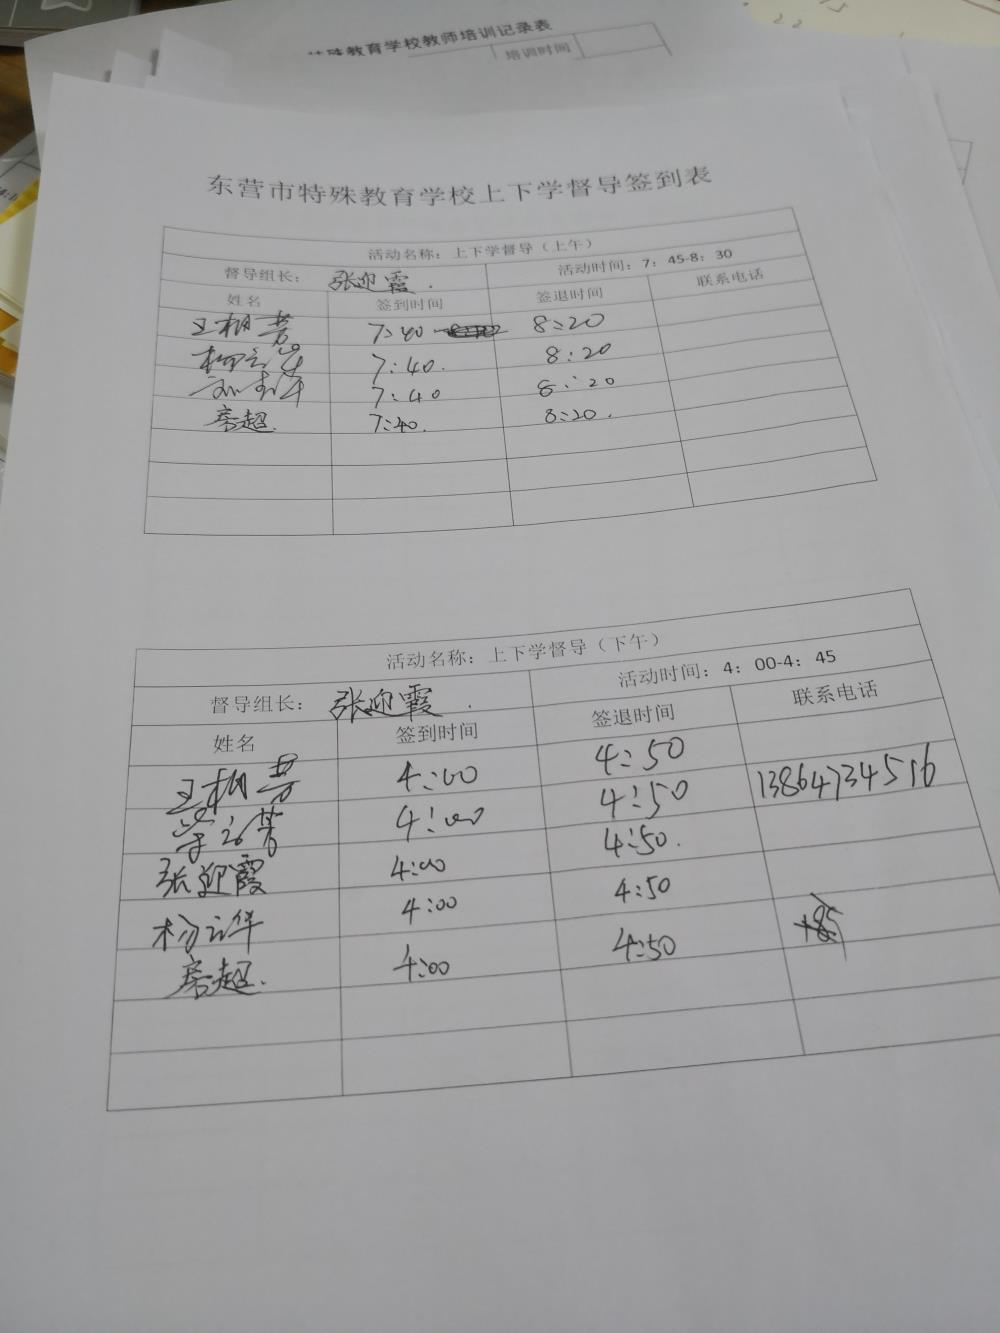 殊教育学校教师培训记录表
培训时间
东营市特殊教育学校上下学督导签到表
活动名称：上下学督导（上午）
督导组长： 张迎霞. 活动时间：7：45-8：30
姓名 签到时间 签退时间 联系电话
7:40 8:20
7:40. 8:20
7:40 8:20
房超. 7:40. 8:20.
活动名称：上下学督导（下午）
督导组长： 张迎霞. 活动时间：4：00-4：45
姓名 签到时间 签退时间 联系电话
4:00 4:50
4:00 4:50 13864734516
张迎霞 4:00 4:50.
4:00 4:50
房超. 4:00 4:50